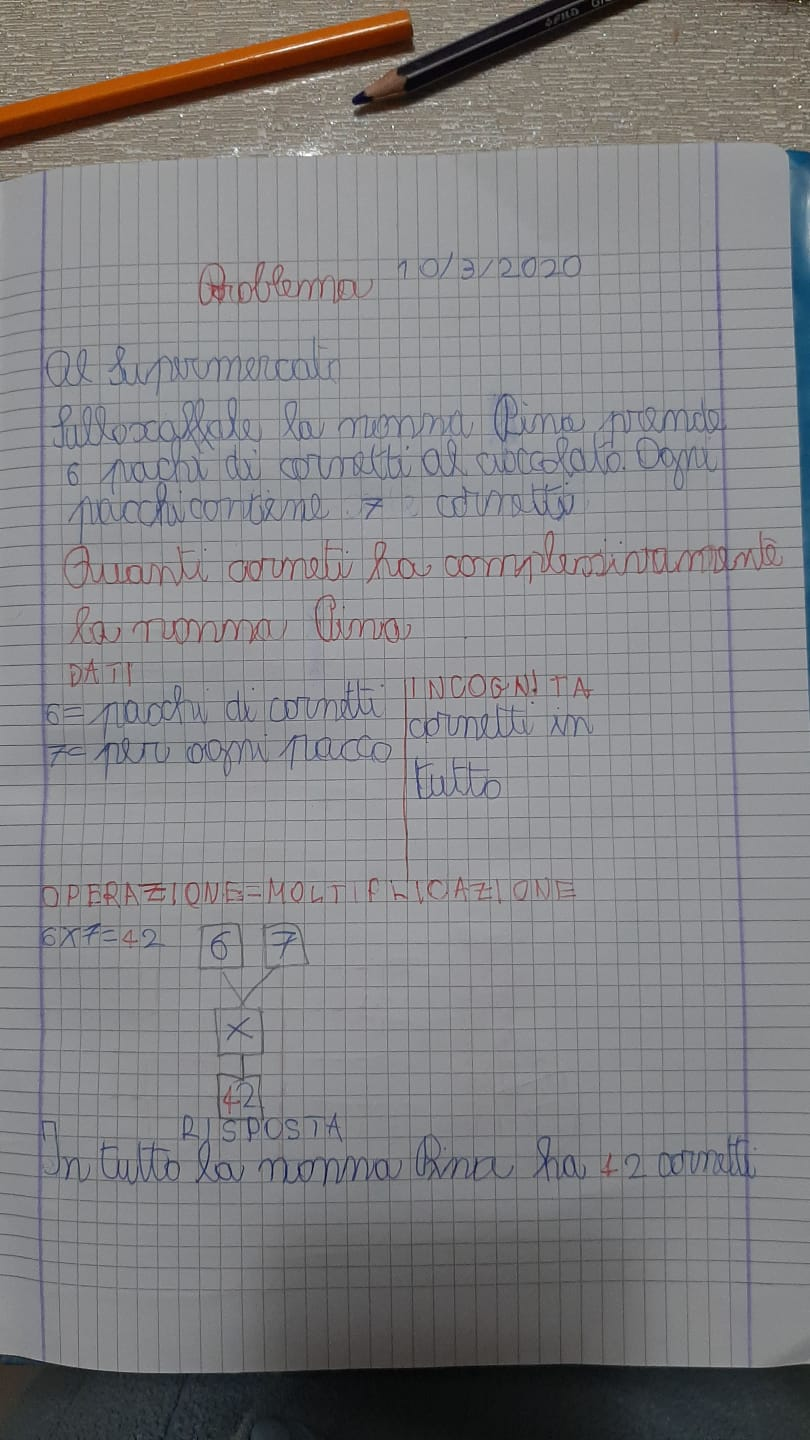 Problema 10/3/2020
Al Supermercato
Sulloscaffale la nonna Pina prende
6 pachi di cornetti al cioccolato. Ogni
pacchicontiene 7 cornetti
Quanti corneti ha complessivamente
la nonna Pina
DATI
INCOGNITA
6= pacchi di cornetti
cornetti in
7= per ogni pacco
tutto
OPERAZIONE=MOLTIPLICAZIONE
6x7=42 6 7
x
42
RISPOSTA
In tutto la nonna Pina ha 42 cornetti